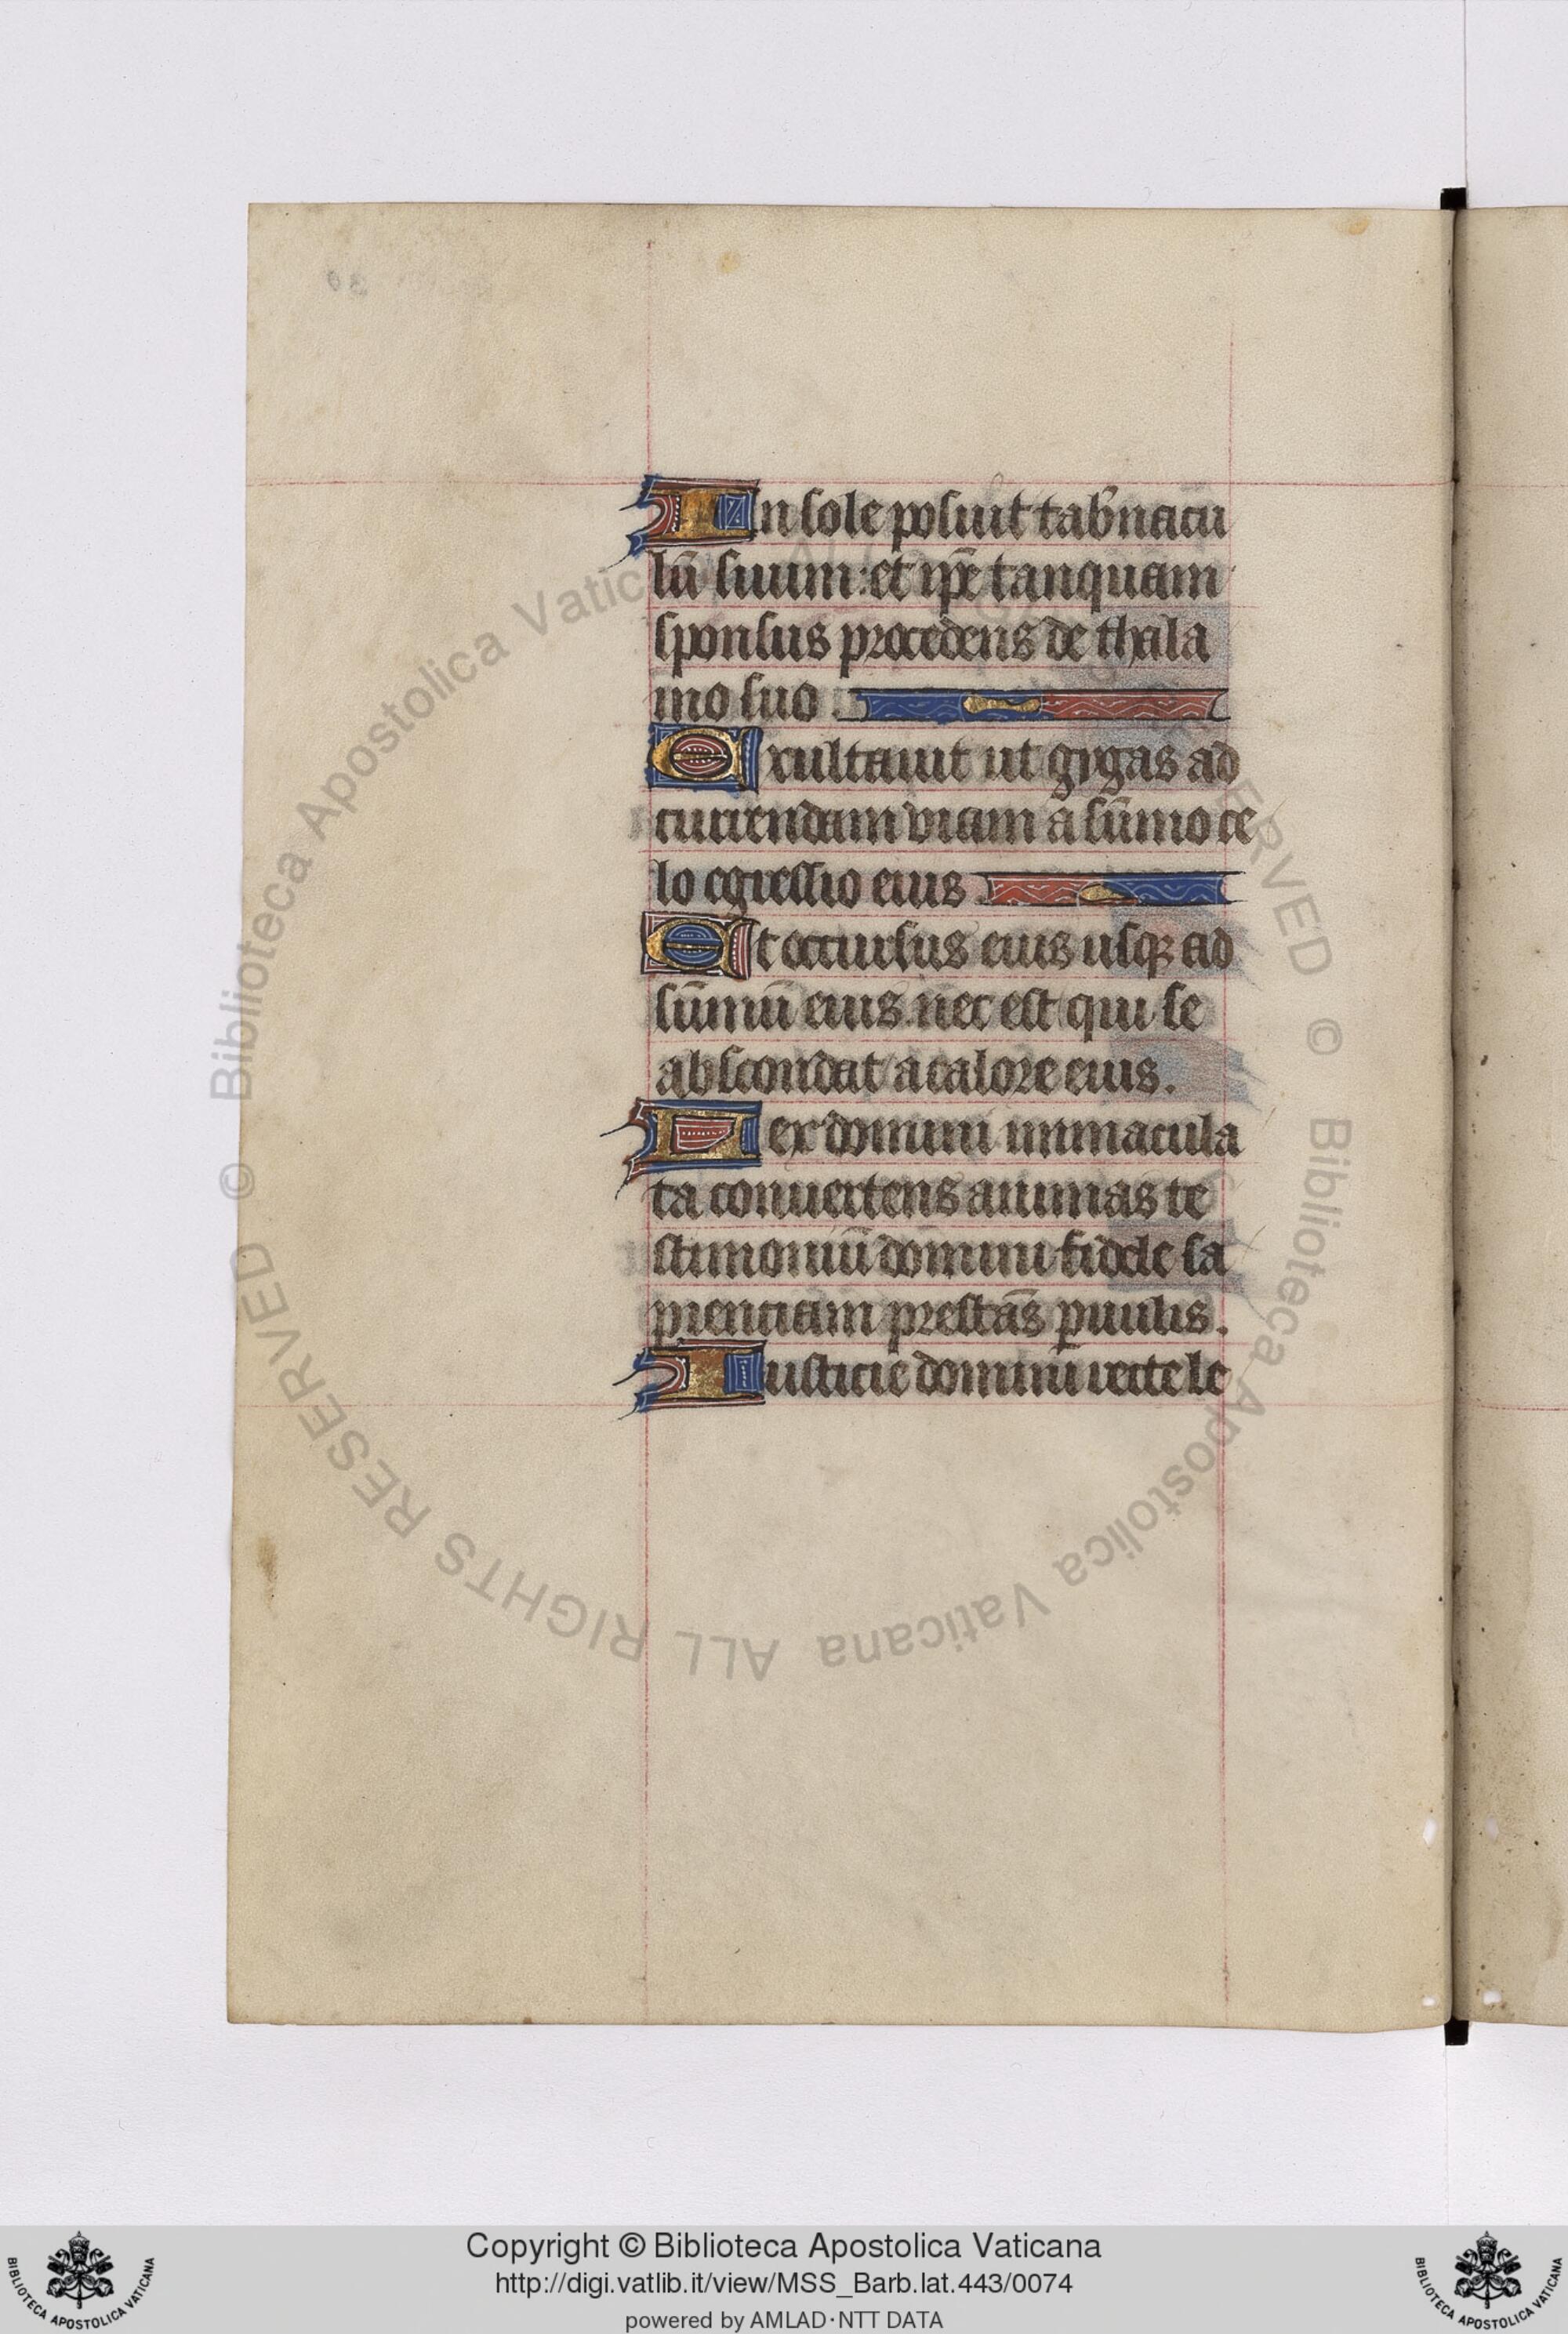 In sole posuit tab̉nacu
lū suum: et ip̄e tanquam
sponsus procedens de thala
mo suo .
Exultauit ut gygas ad
currendam viam a sūmo ce
lo egressio eius .
Et occursus eius usqꝫ ad
sūmū eius. nec est qui se
abscondat a calore eius.
Lex domini immacula
ta conuertens animas te
stimoniū domini fidele sa
pienciam prestās ꝑuulis.
Iusticie domini recte le
© Biblioteca Apostolica Vaticana ALL RIGHTS RESERVED © Biblioteca Apostolica Vaticana ALL RIGHTS RESERVED
Copyright © Biblioteca Apostolica Vaticana
http://digi.vatlib.it/view/MSS_Barb.lat.443/0074
powered by AMLAD·NTT DATA
BIBLIOTECA APOSTOLICA VATICANA
BIBLIOTECA APOSTOLICA VATICANA